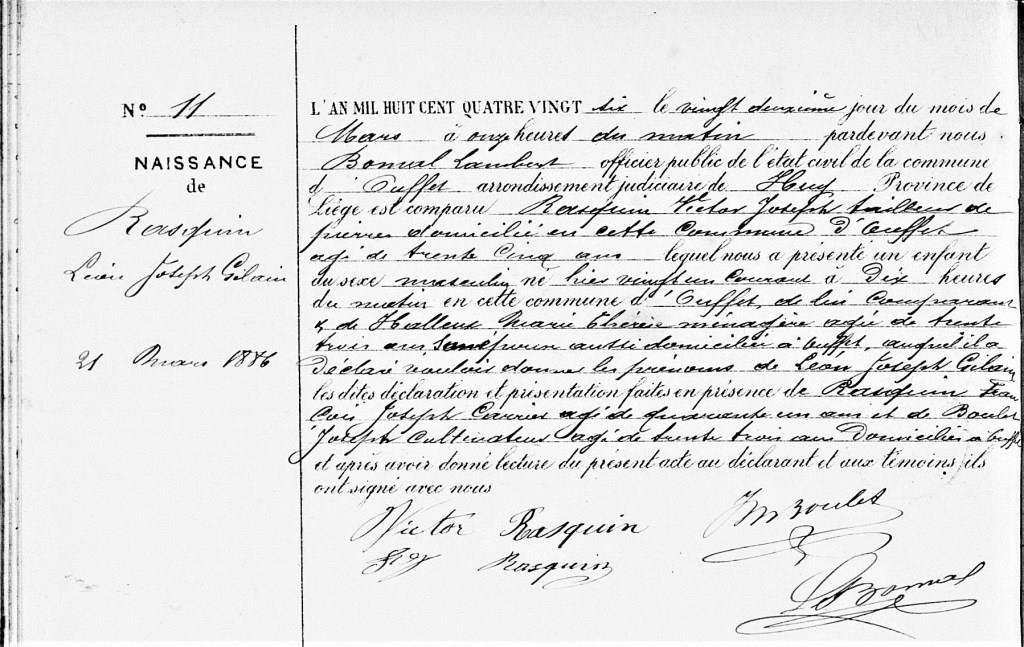 Nº 11
NAISSANCE
de
Rasquin
Léon Joseph Gilain
21 Mars 1886
L'AN MIL HUIT CENT QUATRE VINGT six le vingt deuxième jour du mois de
Mars à onze heures du matin pardevant nous
Bomal Lambert officier public de l'état civil de la commune
d'Ouffet arrondissement judiciaire de Huy Province de
Liége est comparu Rasquin Victor Joseph tailleur de
pierres domicilié en cette commune d'Ouffet
agé de trente cinq ans lequel nous a présenté un enfant
du sexe masculin né hier vingt un courant à Dix heures
du matin en cette commune d'Ouffet, de lui comparant
& de Halleux Marie Thérèse ménagère agée de trente
trois ans, son épouse aussi domiciliée à Ouffet, auquel il a
Déclaré vouloir donner les prénoms de Léon Joseph Gilain
les dites déclaration et présentation faites en présence de Rasquin Fran
çois Joseph Carrier agé de quarante un ans et de Boulet
Joseph cultivateur agé de trente trois ans Domiciliés à Ouffet
et après avoir donné lecture du présent acte au déclarant et aux témoins, ils
ont signé avec nous
Victor Rasquin Boulet
Rasquin
Bomal